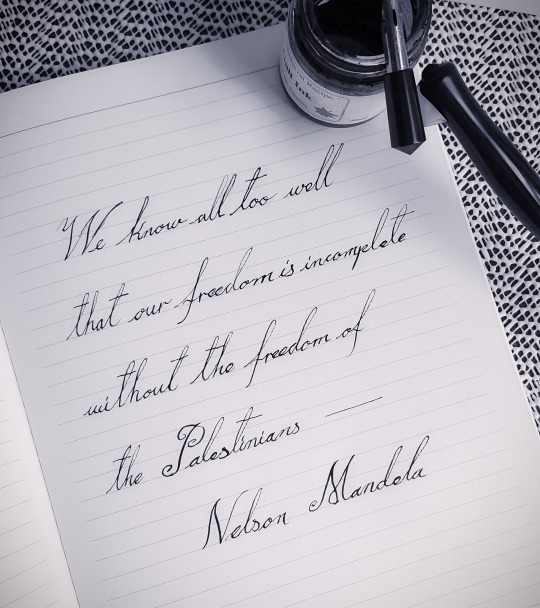 Ink
We know all too well
that our freedom is incomplete
without the freedom of
the Palestinians —
Nelson Mandela